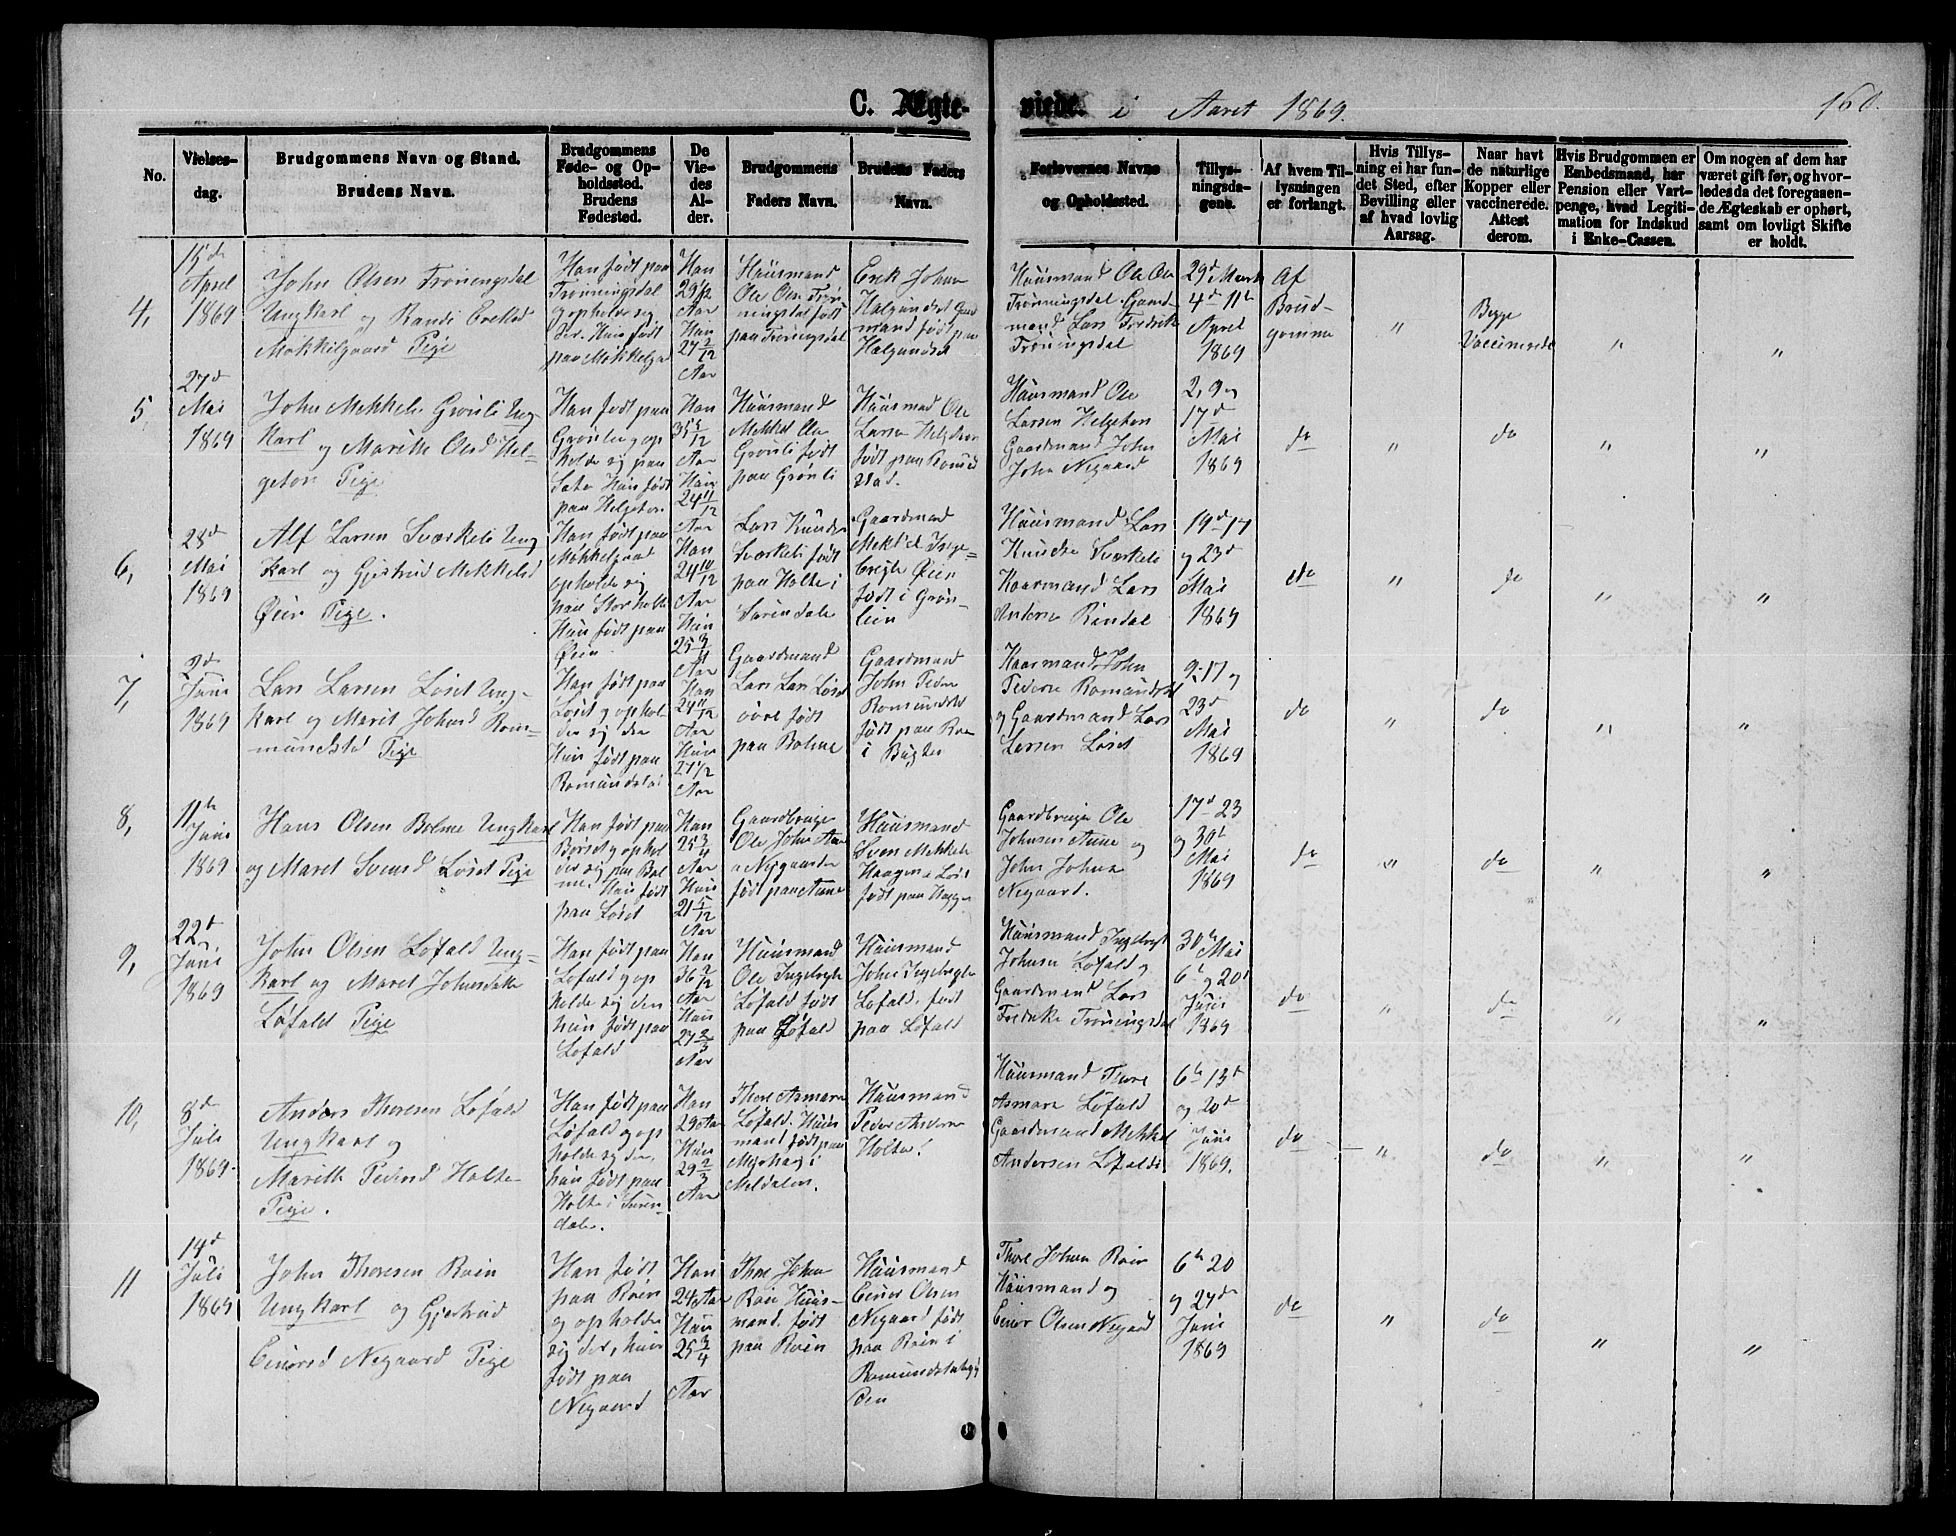 C. Ægte-
viede. i Aaret 1869.
160.
No.
Vielses-
dag.
Brudgommens Navn og Stand.
Brudens Navn.
Brudgommens
Føde- og Op-
holdssted.
Brudens
Fødested.
De
Vie-
des
Al-
der.
Brudgommens
Faders Navn.
Brudens Faders
Navn.
Forlovernes Navne
og Opholdssted.
Tillys-
ningsda-
gene.
Af hvem Til-
lysningen
er forlangt.
Hvis Tillys-
ning ei har fun-
det Sted, efter
Bevilling eller
af hvad lovlig
Aarsag.
Naar havt
de naturlige
Kopper eller
vaccinerede.
Attest
derom.
Hvis Brudgommen er
Embedsmand, har
Pension eller Vart-
penge, hvad Legiti-
mation for Indskud
i Enke-Cassen.
Om nogen af dem har
været gift før, og hvor-
ledes da det foregaaen-
de Ægteskab er ophørt,
samt om lovligt Skifte
er holdt.
4,
15de
Aprel
1869
John Olsen Trøningsdal
Ungkarl og Randi Ereksd
Mokkilgaard Pige
Han født paa
Trønningsdal
g opholde sig
der. Hun født
paa Mokkelgrd
Han
29 1/12
Aar
Hun
27 2/12
Aar
Huusmand
Ole Olsn Trøn-
ningsdal født
paa Trøningsdal
Erek Johnsn
Halgundset Gaard
mand født paa
Halgundset
Huusmand Ole Ols
Trønningsdal Gaard-
mand Lars Fredrik
Trøningsdal
29d Marts
4de 11te
Aprel
1869
Af
Brud-
gomme
"
Begge
Vaccinerede
"
"
5,
27d
Mai
1869
John Mekkels Grønli Ung-
karl og Marith Olsd Hel-
geton Pige
Han født paa
Grønli og op
holde sig paa
Sæter Hun født
paa Helgeton
Han
35 5/12
Aar
Hun
24 11/12
Aar
Huusmand
Mekkel Ols
Grønli født
paa Grønli
Huusmand Ole
Larsn Helgeton
født paa Romund
stad.
Huusmand Ole
Larsen Helgeton
Gaardmand John
John Negaard
2, 9 og
17d
Mai
1869
do
"
do
"
"
6,
28d
Mai
1869
Alf Larsen Sværkeli Ung
karl og Gjertrud Mekkelsd
Øien Pige.
Han født paa
Mokkelgaard
opholde sig
paa Storholte
Hun født paa
Øien.
Han
24 10/12
Aar
Hun
25
Aar
Lars Knuds
Sværkeli født
paa Holte i
Surendale
Gaardmand
Mekkel Inge-
brigts Øien
født i Grøn-
lien
Huusmand Lars
Knudsn Sværkeli
Kaarmand Lars
Anders Rindal
19d 17
og 23d
Mai
1869
do
"
do
"
"
7,
2d
Juni
1869
Lars Larsen Løset Ung-
karl og Marit Johnsd Rom-
mundstd Pige
Han født paa
Løset g ophol-
der sig der
Hun født paa
Romundstad
Han
24 11/12
Aar
Hun
21 1/2
Aar
Gaardmand
Lars Lars Løset
øvre født
paa Bolme
Gaardmand
John Peder
Romundstd
født paa Roen
i Bugten
Kaarmand John
Peders Romundstd
og Gaardmand Lars
Larsen Løset
9-17 og
23d
Mai
1869
do
"
do
"
"
8,
11te
Juni
1869
Hans Olsen Bolme Ungkarl
og Maret Svensd Løset Pige
Han født paa
Børset g ophol
der sig paa Bol
me. Hun født
paa Løset
Han
25 3/4
Aar
Hun
21 5/12
Aar
Gaardbruge
Ole John Aune
Nygaarden
født paa Aune
Huusmand
Sven Mekkels
Haagen Løset
født paa Haggen
Gaardbruge Ole
Johnsen Aune og
John Johnsn
Negaard.
17d 23
og 30t
Mai
1869
do
"
do
"
"
9,
22d
Juni
1869
John Olsen Løfald Ung-
karl og Maret Johnsdtr
Løfald Pige
Han født paa
Løfald g op
holde sig der
hun født paa
Løfald
Han
36 2/12
Aar
Hun
27 2/3
Aar
Huusmand
Ole Ingebrigts
Løfald født
paa Løfald
Huusmand
John Ingebrigts
Løfald. født
paa Løfald
Huusmand Ingebrigt
Johnsn Løfald og
Gaardmand Lars
Fredrike Trøningsdal
30te Mai
6te g 20d
Juni
1869
do
"
do
"
"
10,
8d
Juli
1869.
Anders Thoresen Løfald
Ungkarl og
Marith Pedersd Holte
Pige.
Han født paa
Løfald og op
holde sig der,
hun født paa
Holte i Suren-
dalen.
Han
29 Aar
Hun
29 2/3
Aar
Thore Asmars
Løfald. Huus
mand født paa
i
Meldalen.
Huusmand
Peder Anders
Holte!
Huusmand Thore
Asmars Løfald
Gaardmand Mekkel
Andersen Løfald
6te 13d
og 20d
Juni
1869.
do
"
do
"
"
11
14d
Juli
1869
John Thoresen Roen
Ungkarl og Gjertrud
Einersd Negaard Pige
Han født
paa Roen
og opholde
sig der, hun
født paa
Negaard
Han
24 Aar
Hun
25 3/4
Aar
Thore Johnsn
Roen Huus-
mand. født
paa Roen
Huusmand
Einer Olsen
Negaard født
paa Roen i
Romundstadbyg
den
Thore Johnsn Roen
Huusmand og
Einer Olsen Negaard
6te 20
og 27de
Juni
1869
do
"
do
"
"